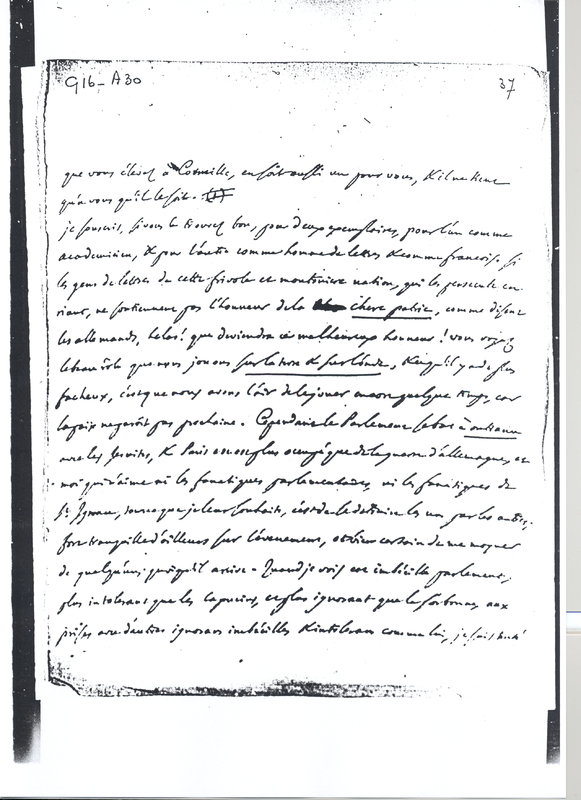 G16-A30
37
que vous élevez à Corneille, en soit aussi un pour vous, & il ne tiene
qu'à vous qu'il le soit.
je souscris, si vous le trouvez bon, pour deux exemplaires, pour l'un comme
academicien, & pour l'autre comme homme de lettres & comme francois. si
les gens de lettres de cette frivole et moutoniere nation, qui les persecute en
riant, ne soutiennent pas l'honneur de la chere patrie, comme disent
les allemands, helas! que deviendra ce malheureux honneur! vous voyez
le beau rôle que nous jouons sur la terre & sur l'onde, & ce qu'il y a de plus
facheux, c'est que nous avons l'air de le jouer encore quelque temps, car
la paix ne paroît pas prochaine. Cependant le Parlement se bat à outrance
avec les Jesuites, & Paris en est plus occupé que de la guerre d'allemagne, et
moi qui n'aime ni les fanatiques parlementaires, ni les fanatiques de
St Ignace, tout ce que je leur souhaite, c'est de se detruire les uns par les autres,
fort tranquille d'ailleurs sur l'evenement, et bien certain de me moquer
de quelqu'un, quoiqu'il arrive. Quand je vois cet imbecille parlement,
plus intolerant que les capucins, et plus ignorant que la sorbonne, aux
prises avec d'autres ignorans imbécilles & intolerans comme lui, je suis tenté